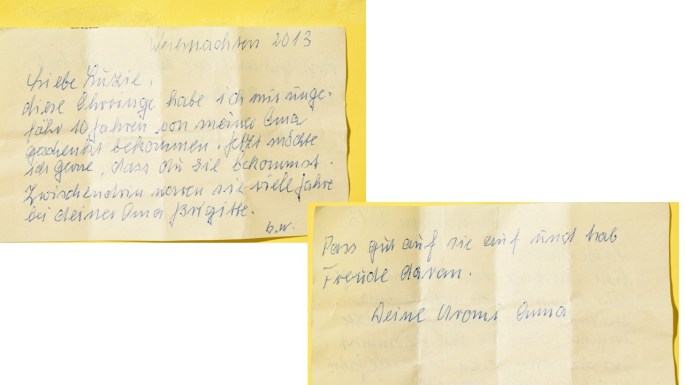 Weihnachten 2013
Liebe Luzie,
diese Ohrringe habe ich mit unge-
fähr 10 Jahren von meiner Oma
geschenkt bekommen. Jetzt möchte
ich gerne, dass du sie bekommst.
Zwischendrin waren sie viele Jahre
bei deiner Oma Brigitte.
b.w.
Pass gut auf sie auf und hab
Freude daran.
Deine Uromi Anna